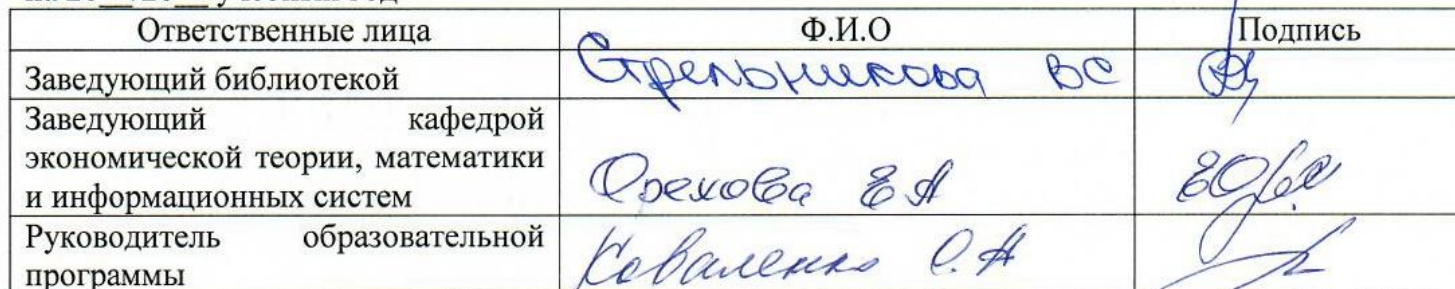 Ответственные лица Ф.И.О Подпись
Заведующий библиотекой Стрельникова ВС
Заведующий кафедрой
экономической теории, математики
и информационных систем Орехова ЕА
Руководитель образовательной
программы Коваленко С.А